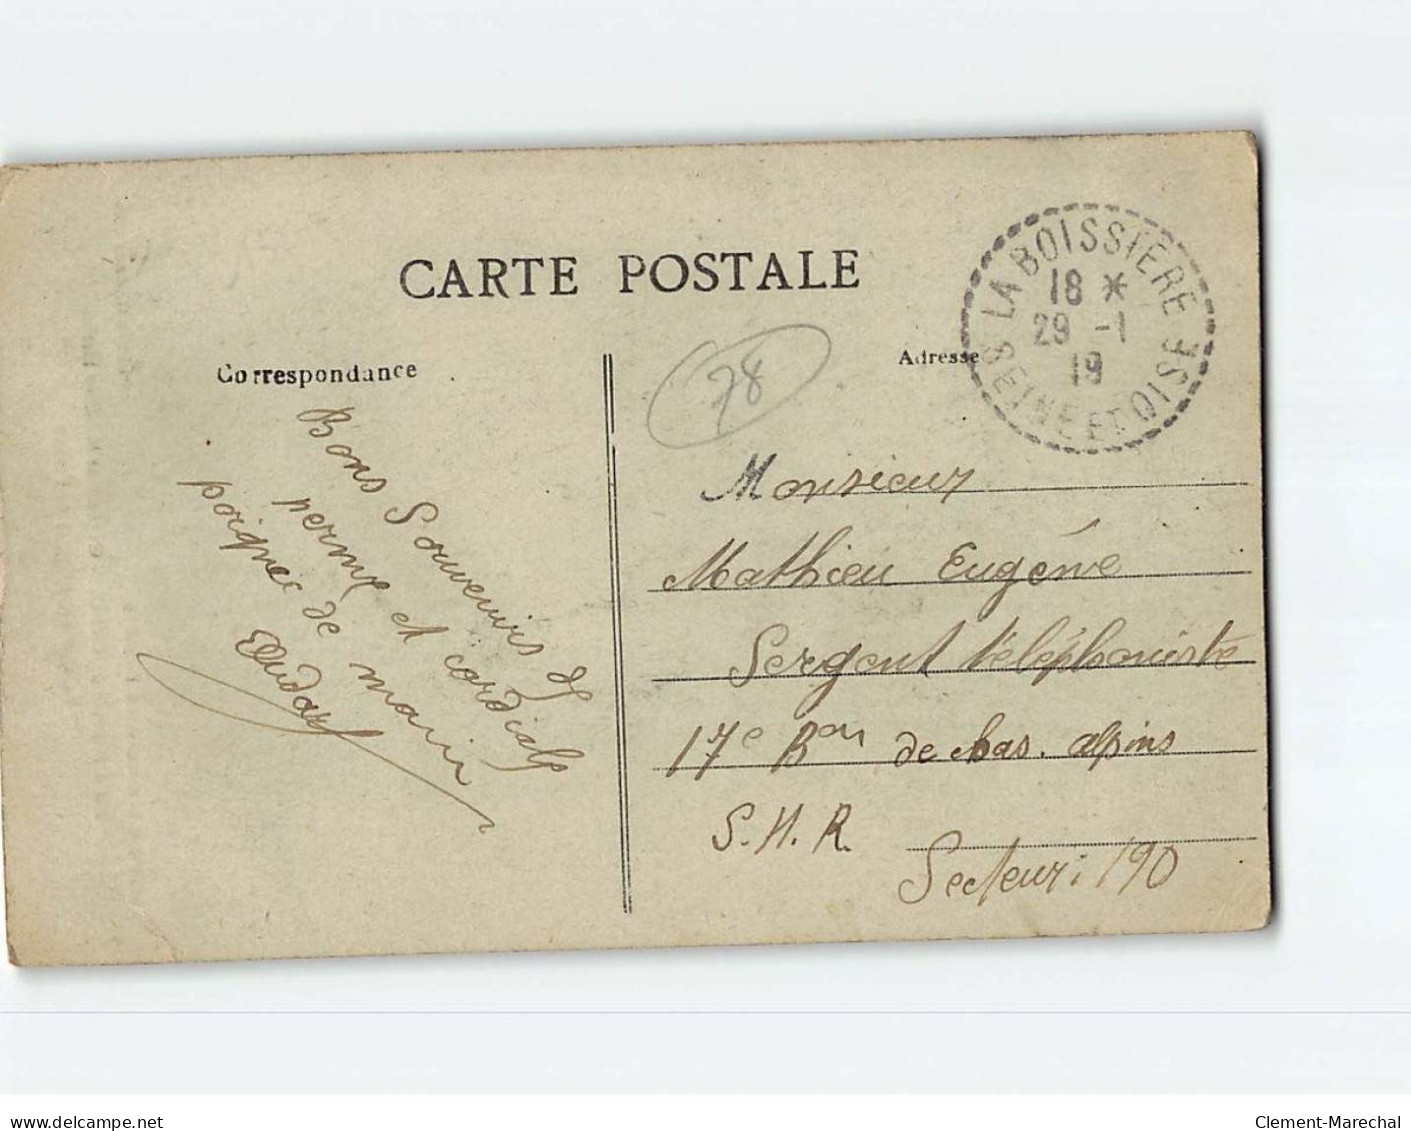 CARTE POSTALE
Correspondance
Bons Souvenirs de
perme et cordiale
poignée de main
78
Adresse
LA BOISSIERE
18 *
29 -1
19
SEINE ET OISE
Monsieur
Mathieu Eugène
Sergent téléphoniste
17e Bon de chas. alpins
S.H.R.
Secteur: 190
www.delcampe.net
Clement-Marechal